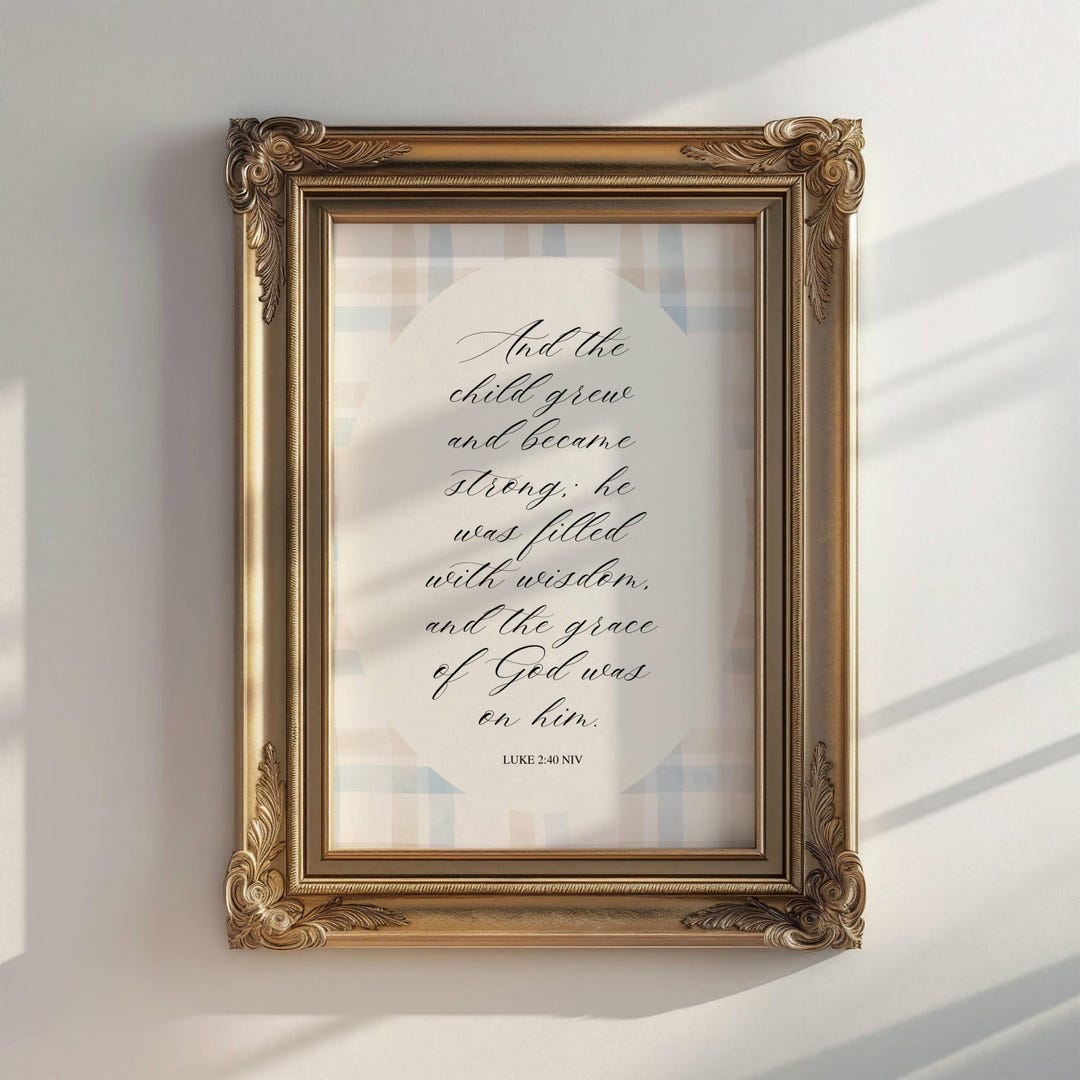 And the
child grew
and became
strong; he
was filled
with wisdom,
and the grace
of God was
on him.
LUKE 2:40 NIV